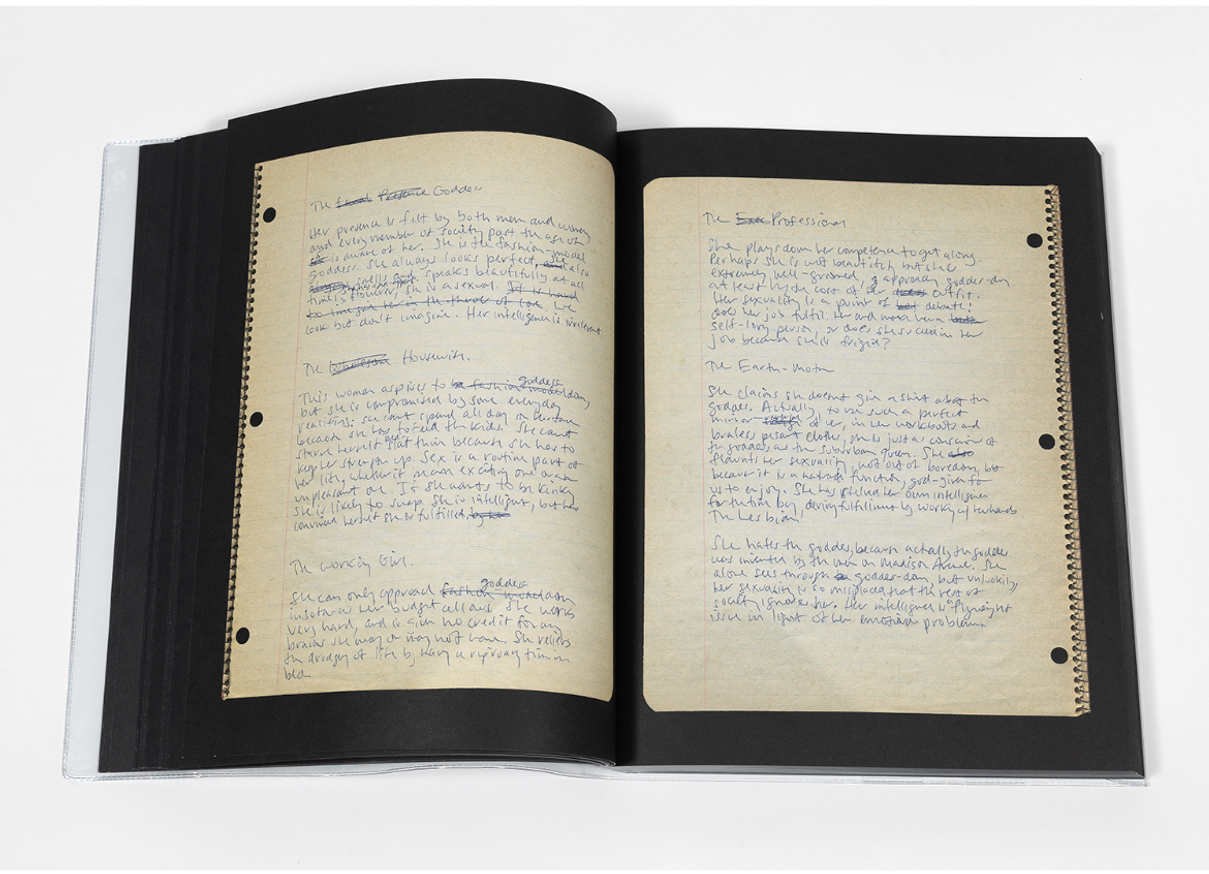 The Goddess
Her presence is felt by both men and women,
and every member of society past the age of
six is aware of her. She is the fashion-model
goddess. She always looks perfect, also
speaks beautifully at all
times. She is asexual. It is hard
to imagine her in the throes of love. We
look but don't imagine. Her intelligence is irrelevant
The Wholesome Housewife.
This woman aspires to be a fashion model goddess dom,
but she is compromised by some everyday
realities. She can't spend all day on her
because she has to feed the kids. She can't
starve herself flat thin because she has to
keep her strength up. Sex is a routine part of
her life, whether it means exciting one or an
unpleasant one. If she wants to be kinky
she is likely to swap. She is intelligent, but has
convinced herself she is fulfilled
The Working Girl.
She can only approach fashion model goddess dom
insofar as her budget allows. She works
very hard, and is given no credit for any
brains she may or may not have. She relieves
the drudgery of life by having a time in
bed.
The Professional
She plays down her competence to get along.
Perhaps she is not beautiful but she is
extremely well-groomed, approaching goddess-dom
at least by the cost of her outfit.
Her sexuality is a point of debate:
does her job fulfill her and make her a
self-loving person, or does she succeed in her
job because she is frigid?
The Earth-mother
She claims she doesn't give a shit about the
goddess. Actually, to be such a perfect
mirror of her, in her workboots and
braless peasant clothes, she is just as conscious of
the goddess, as the suburban queen. She also
flaunts her sexuality, not out of boredom, but
because it is a natural function, god-given for
us to enjoy. She has her own intelligence
for the time being, deriving fulfillment by working w/ her hands
The Lesbian
She hates the goddess, because actually, the goddess
was invented by the men on Madison Avenue. She
alone sees through goddess-dom, but unluckily,
her sexuality is so misplaced that the rest of
society ignores her. Her intelligence is
issue in light of her emotional problems.